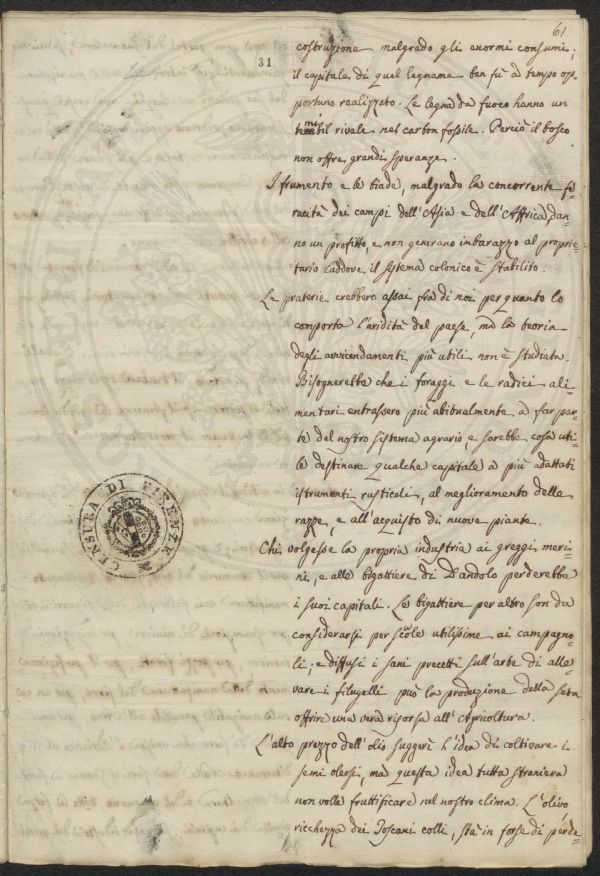 61
31
costruzione malgrado gli enormi consumi;
il capitale di quel legname ben fù a tempo op-
portuno realizzato. Le legna da fuoco hanno un
temibil rivale nel carbon fossile. Perciò il bosco
non offre grandi speranze.
I frumento e le biade, malgrado la concorrente fe-
racità dei campi dell'Asia e dell'Affrica, dan-
no un profitto, e non generano imbarazzo al proprie-
tario laddove il sistema colonico è stabilito.
Le praterie crebbero assai frà di noi per quanto lo
comporta l'aridità del paese, mà la teoria
degli avvicendamenti più utili non è studiata.
Bisognerebbe che i foraggi e le radici ali-
mentari entrassero più abitualmente a far par-
te del nostro sistema agrario, e sarebbe cosa uti-
le destinare qualche capitale a più adattati
istrumenti rusticali, al miglioramento delle
razze, e all'acquisto di nuove piante.
Chi volgesse la propria industria ai greggi meri-
ni, e alle bigattiere di Dandolo perderebbe
i suoi capitali. Le bigattiere per altro son da
considerarsi per scuole utilissime ai campagno-
li; e diffusi i sani precetti sull'arte di alle-
vare i filugelli può la produzione della seta
offrire una vera risorsa all'Agricoltura.
L'alto prezzo dell'olio suggerì l'idea di coltivare i
semi oleosi, ma questa idea tutta straniera
non volle fruttificare nel nostro clima. L'olivo
ricchezza dei Toscani colli, stà in forse di perde-
CENSURA DI FIRENZE